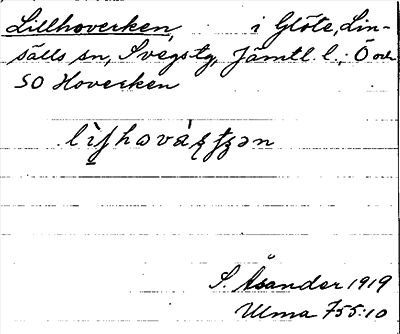 Lillhoverken, i Glöte, Lin-
sälls sn, Svegs tg, Jämtl. l.; Ö och
SO Hoverken
S. Åsander 1919
Ulma 755:10